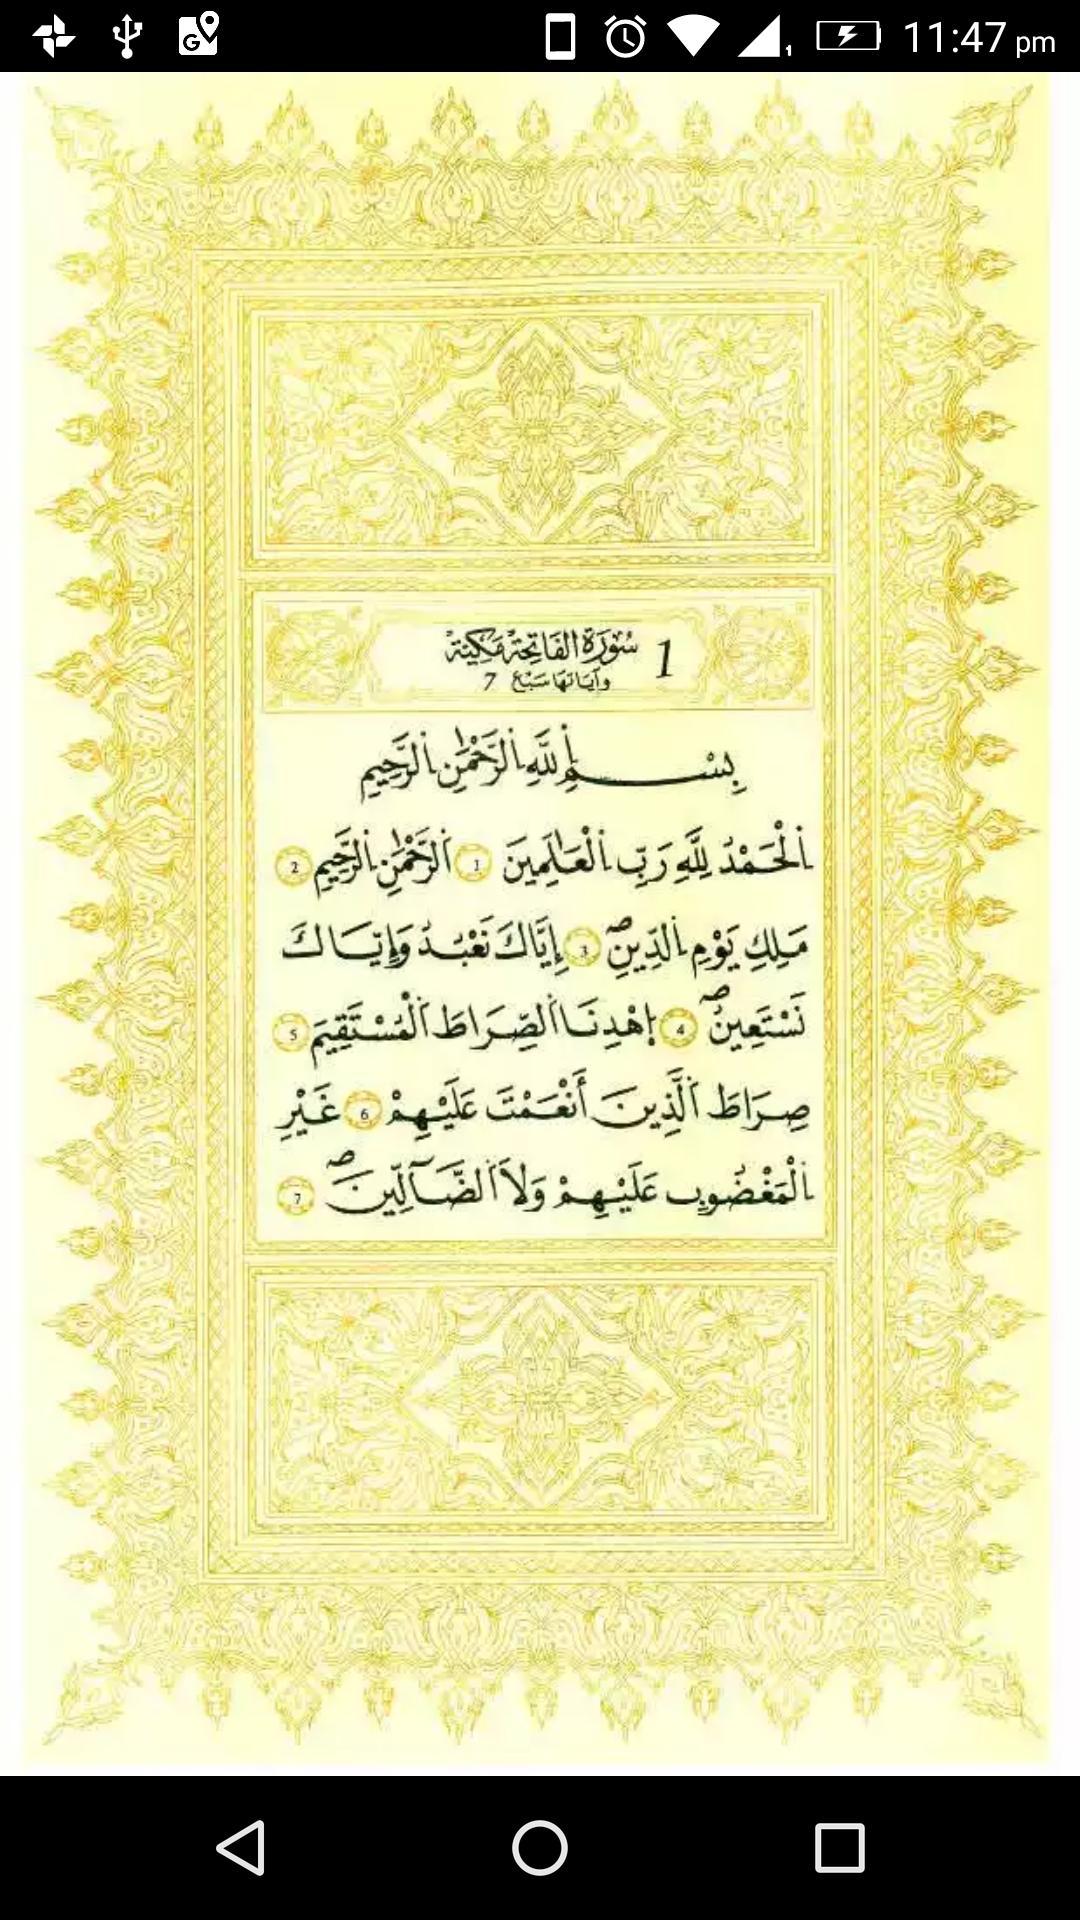 11:47 pm
1 سُورَةُ الفَاتِحَةِ مَكِّيَّة
وآيَاتهَا سَبْع 7
بِسْمِ اِللَّهِ اِلرَّحْمَٰنِ اِلرَّحِيمِ
اِلْحَمْدُ لِلَّهِ رَبِّ اِلْعَٰلَمِينَ 1 اَلرَّحْمَٰنِ اِلرَّحِيمِ 2
مَلِكِ يَوْمِ اِلدِّينِۖ 3 إِيَّاكَ نَعْبُدُ وَإِيَّاكَ
نَسْتَعِينُۖ 4 اِهْدِنَا اَلصِّرَاطَ اَلْمُسْتَقِيمَ 5
صِرَاطَ اَلَّذِينَ أَنْعَمْتَ عَلَيْهِمْ 6 غَيْرِ
اِلْمَغْضُوبِ عَلَيْهِمْ وَلَا اَلضَّآلِّينَۖ 7